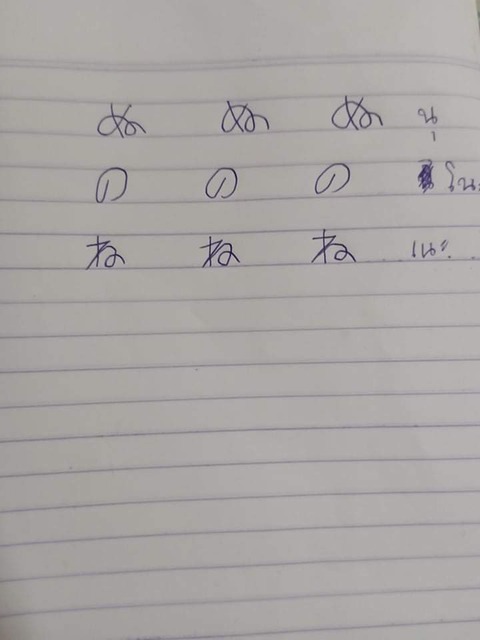 ぬ ぬ ぬ นุ
の の の โนะ
ね ね ね เนะ